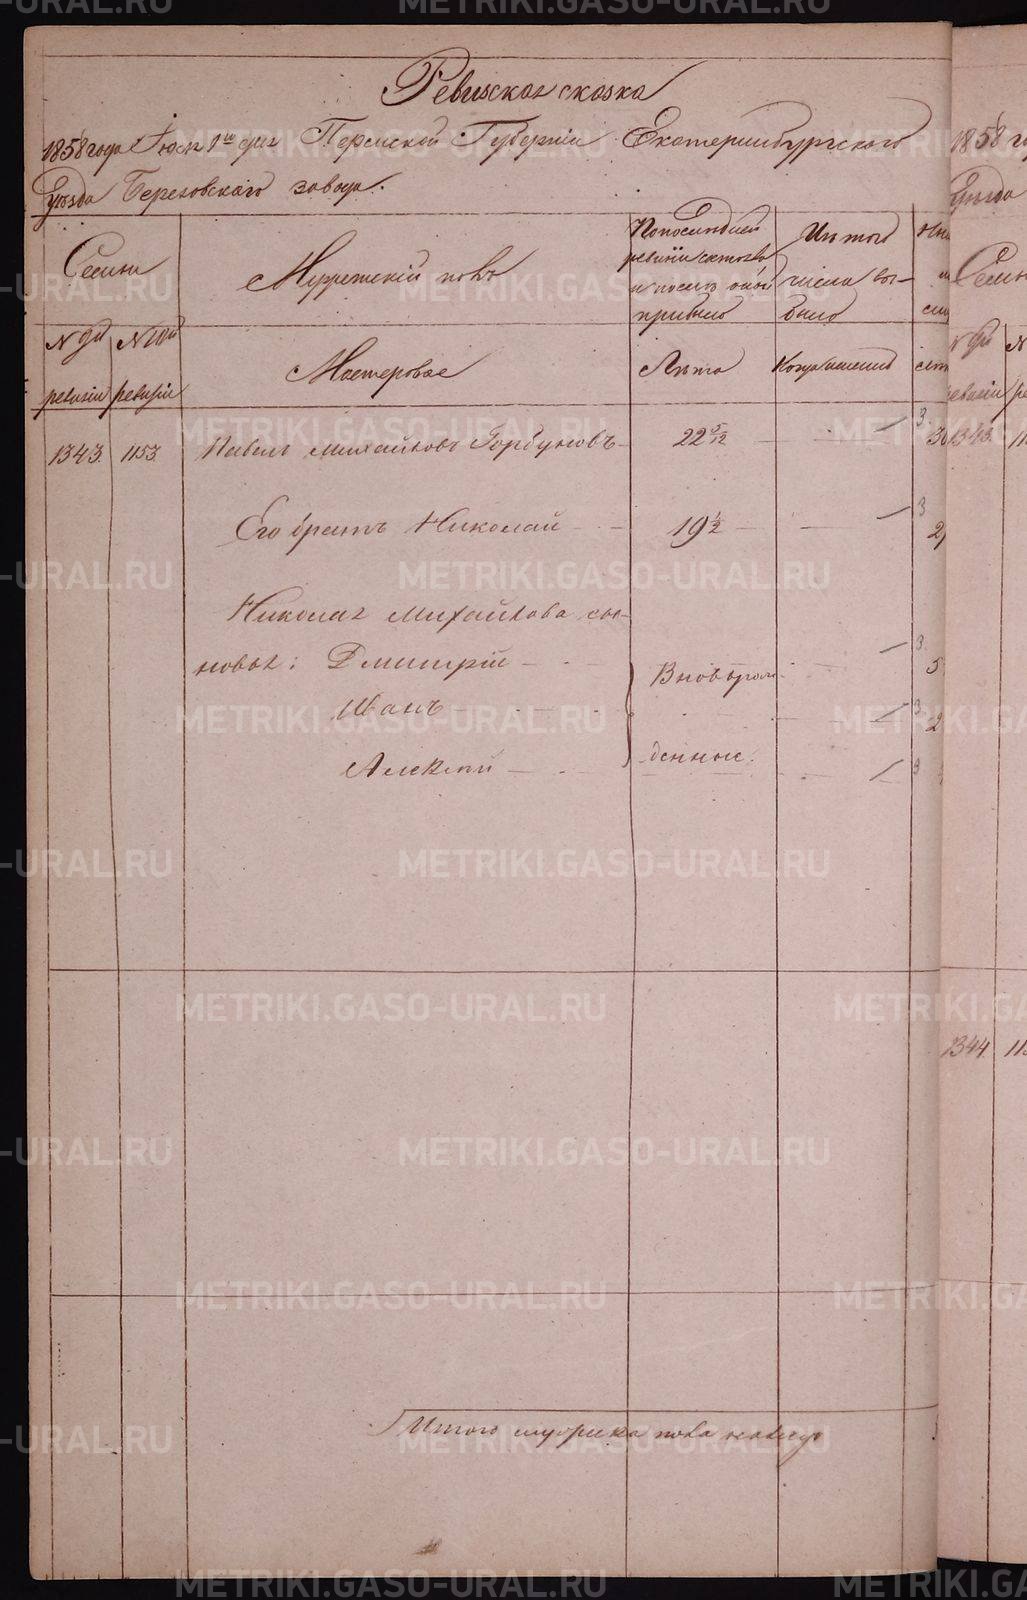 Ревизская сказка
1858 года Июня 1го дня Пермской Губернии Екатеринбургского
Уѣзда Березовскаго завода.
Семьи
Мужескій полъ
По последней ревизіи состояло и послѣ оной прибыло
Изъ того числа выбыло
№ 9й ревизіи
№ 10й ревизіи
Мастеровые
Лѣта
Когда именно
1343. 1153. Павелъ Михайловъ Горбуновъ 22 5/12
Его братъ Николай 19 1/2
Николая Михайлова сы-
новья: Дмитрій
Вновьрож-
Иванъ
Алексѣй
денные.
Итого мужеска пола налицо
1858
Уѣзда
1343.
1344.
METRIKI.GASO-URAL.RU